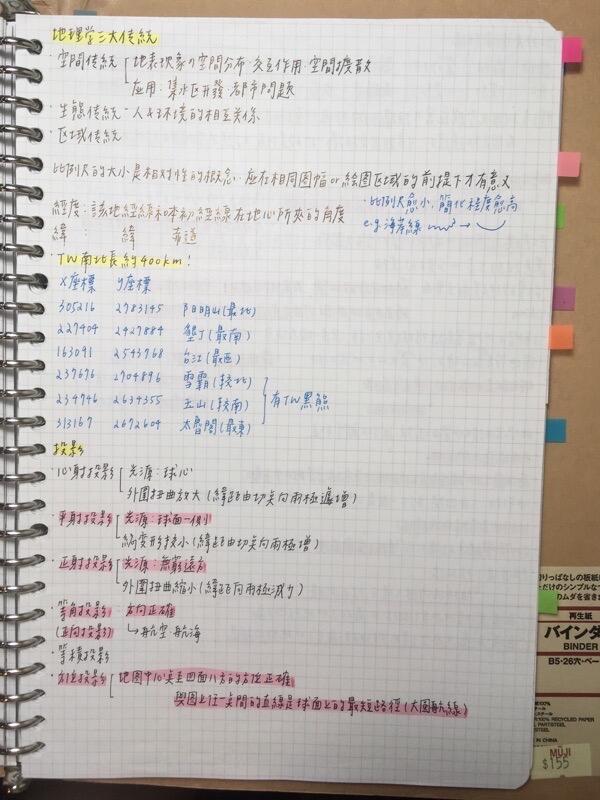 地理学三大传統
·空間传統 地表現象の空間分布·交互作用·空間擴散
应用:集水区开發·都市問題
·生態传統-人&环境的相互关係
·区域传統
比例尺的大小是相对性的概念·应在相同圖幅or绘圖区域的前提下才有意义
·比例尺愈小,簡化程度愈高
e.g.海岸線 →
經度:該地經線和本初經線在地心所夾的角度
緯: 緯 赤道
·TW南北長約400km!
X座標 y座標
305216 2783145 阳明山(最北)
227404 2427884 墾丁(最南)
163091 2543768 台江(最西)
237676 2704896 雪霸(较北)
234746 2634355 玉山(较南)
有TW黑熊
313167 2672604 太魯閣(最東)
投影
·心射投影 光源:球心
外圍扭曲放大(緯距由切点向兩極遞增)
·平射投影 光源:球面一側
变形较小(緯距由切点向兩極增)
·正射投影 光源:無窮遠方
外圍扭曲縮小(緯距向兩極減少)
·等角投影 方向正確
(正向投影) ↳航空·航海
·等積投影
·方位投影 地图中心点至四面八方的方位正確
與圖上任一点間的直線是球面上的最短路徑(大圓航線)
再生紙
バインダ
BINDER
B5·26穴·ベー
100% RECYCLED PAPER
IN CHINA
MUJI
$155